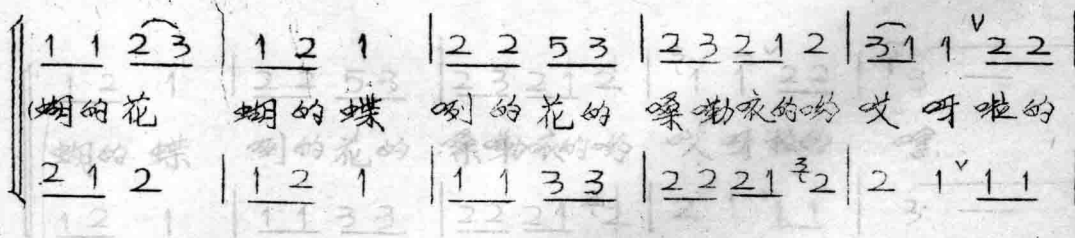 1 1 2 3 | 1 2 1 | 2 2 5 3 | 2 3 2 1 2 | 3 1 1 ∨ 2 2 |
蝴的花 蝴的蝶 咧的花的 嗓嘞衣的哟 哎呀啦的
2 1 2 | 1 2 1 | 1 1 3 3 | 2 2 2 1 3 2 | 2 1 ∨ 1 1 |